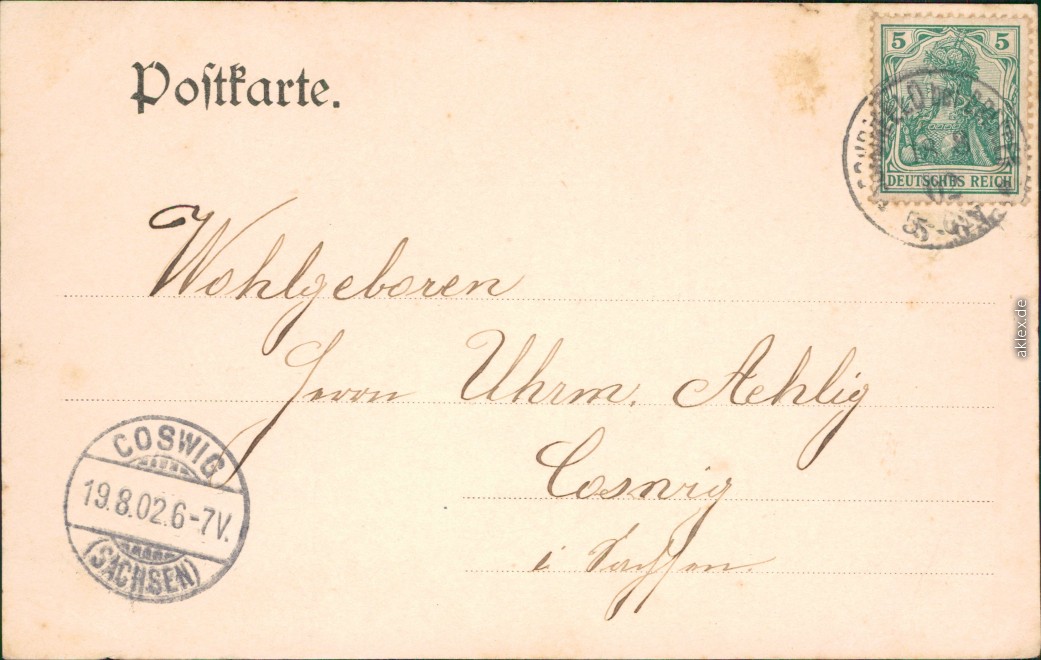 Postkarte.
5 5
DEUTSCHES REICH
Wohlgeboren
Herrn Uhrm. Aehlig
Coswig
i. Sachsen.
COSWIG
19.8.02.6-7V.
(SACHSEN)
aklex.de